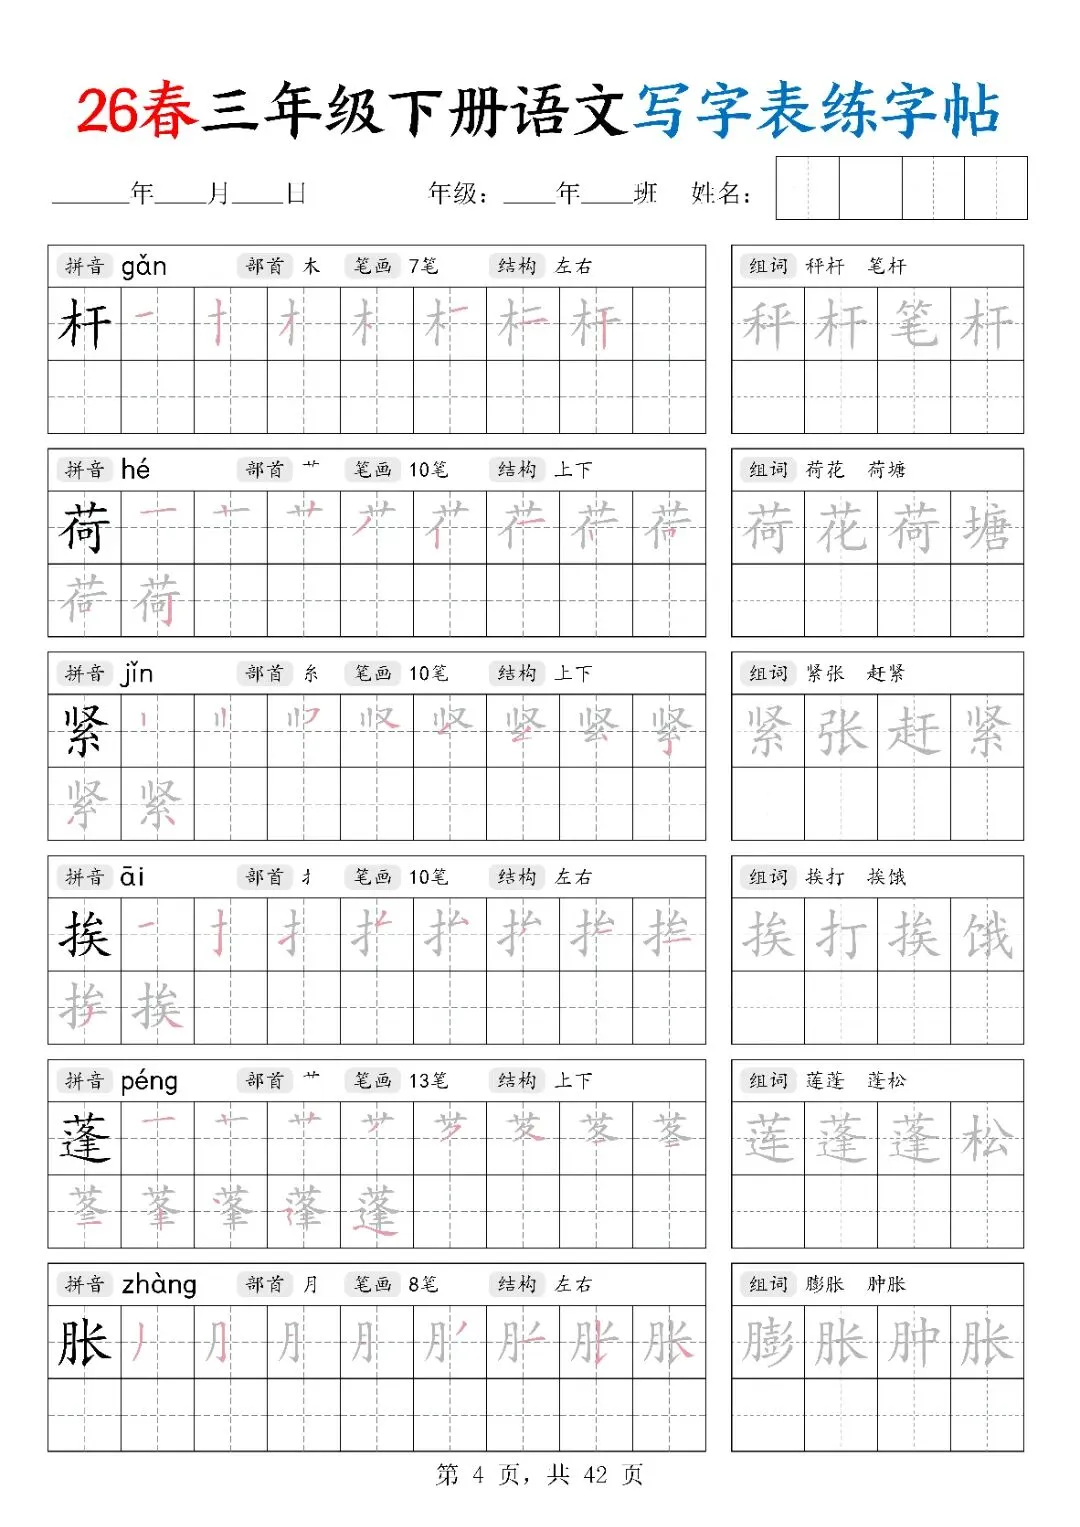 26春三年级下册语文写字表练字帖
____年____月____日 年级：____年____班 姓名：
拼音 gǎn 部首 木 笔画 7笔 结构 左右 组词 秤杆 笔杆
杆 秤杆笔杆
拼音 hé 部首 艹 笔画 10笔 结构 上下 组词 荷花 荷塘
荷 荷花荷塘
荷
拼音 jǐn 部首 糸 笔画 10笔 结构 上下 组词 紧张 赶紧
紧 紧张赶紧
紧
拼音 āi 部首 扌 笔画 10笔 结构 左右 组词 挨打 挨饿
挨 挨打挨饿
挨
拼音 péng 部首 艹 笔画 13笔 结构 上下 组词 莲蓬 蓬松
蓬 莲蓬蓬松
蓬
拼音 zhàng 部首 月 笔画 8笔 结构 左右 组词 膨胀 肿胀
胀 膨胀肿胀
第 4 页，共 42 页